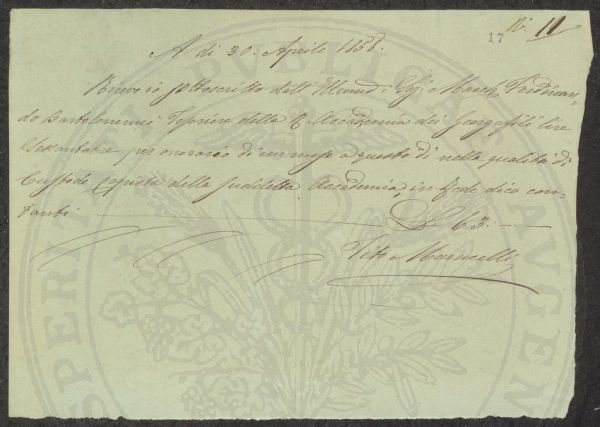 17 N 11
A di 30. Aprile 1858.
Ricevo io sottoscritto dall' Illmo Sig. March. Ferdinan-
do Bartolommei Tesorier della R. Accademia dei Georgofili lire
Sessantatre per onorario di un mese a questo dì nella qualità di
Custode Copista della suddetta Accademia, in fede dico con-
tanti 63.-
Tito
PUBLICA
PROSPERITATI AUGENDAE